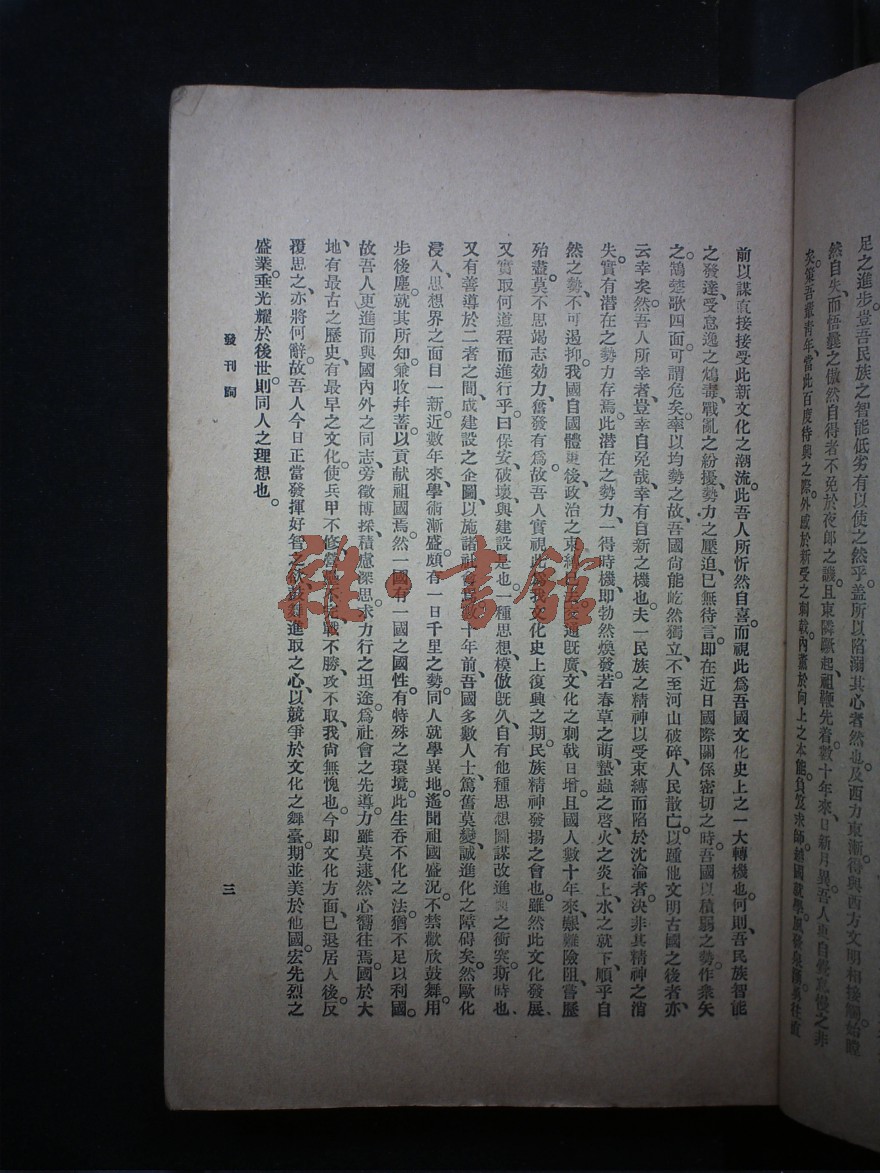 足之進步。豈吾民族之智能低劣有以使之然乎。蓋所以陷溺其心者然也。及西力東漸、得與西方文明相接觸、始瞠
然自失、而悟曩之傲然自得者、不免於夜郎之譏。且東隣蹶起、祖鞭先着、數十年來、日新月異、吾人更自覺怠慢之非
矣。第吾儕青年、當此百度待興之際、外感於新受之刺戟、內薰於向上之本能、負笈求師、越國就學、風發
前以謀直接接受此新文化之潮流。此吾人所忻然自喜、而視此爲吾國文化史上之一大轉機也。何則、吾民族智能
之發達、受怠逸之鴆毒、戰亂之紛擾、勢力之壓迫、已無待言。即在近日國際關係密切之時、吾國以積弱之勢、作衆矢
之鵠、楚歌四面、可謂危矣。率以均勢之故、吾國尙能屹然獨立、不至河山破碎、人民散亡、以踵他文明古國之後者、亦
云幸矣。然吾人所幸者、豈幸自免哉、幸有自新之機也。夫一民族之精神、以受束縛而陷於沈淪者、決非其精神之消
失。實有潛在之勢力存焉。此潛在之勢力、一得時機、即勃然煥發、若春草之萌、蟄蟲之啓、火之炎上、水之就下、順乎自
然之勢、不可遏抑。我國自國體更後、政治之束縛已 旣廣、文化之刺戟日增、且國人數十年來、艱難險阻、嘗歷
殆盡、莫不思竭志効力、奮發有爲。故吾人實視此爲我文化史上復興之期、民族精神發揚之會也。雖然、此文化發展、
又實取何道程而進行乎。曰保安、破壞與建設是也。一種思想、模倣旣久、自有他種思想圖謀改進與之衝突、斯時也、
又有善導於二者之間、成建設之企圖、以施諸社會 數十年前、吾國多數人士、篤舊莫變、誠進化之障碍矣。然歐化
浸入、思想界之面目一新、近數年來、學術漸盛、頗有一日千里之勢。同人就學異地、遙聞祖國盛況、不禁歡欣鼓舞、用
步後塵、就其所知、兼收幷蓄、以貢献祖國焉。然一國有一國之國性、有特殊之環境。此生吞不化之法、猶不足以利國。
故吾人更進而與國內外之同志、旁徵博採、積慮深思、求力行之坦途、爲社會之先導。力雖莫逮、然心嚮往焉。國於大
地、有最古之歷史、有最早之文化。使兵甲不修、 戰不勝、攻不取、我尙無愧也。今即文化方面、已退居人後、反
覆思之、亦將何辭。故吾人今日正當發揮好智之欲、鼓舞進取之心、以競爭於文化之舞臺、期並美於他國、宏先烈之
盛業、垂光耀於後世、則同人之理想也。
發刊詞
三
雜·書館